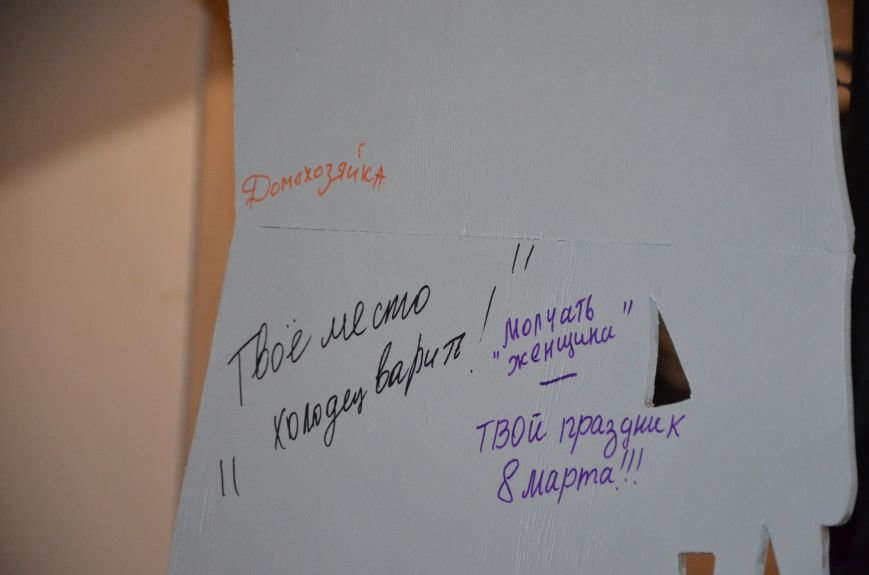 Домохозяйка
"Твоё место
холодец варить!"
Молчать
"женщина"
—
ТВОй праздник
8 марта!!!